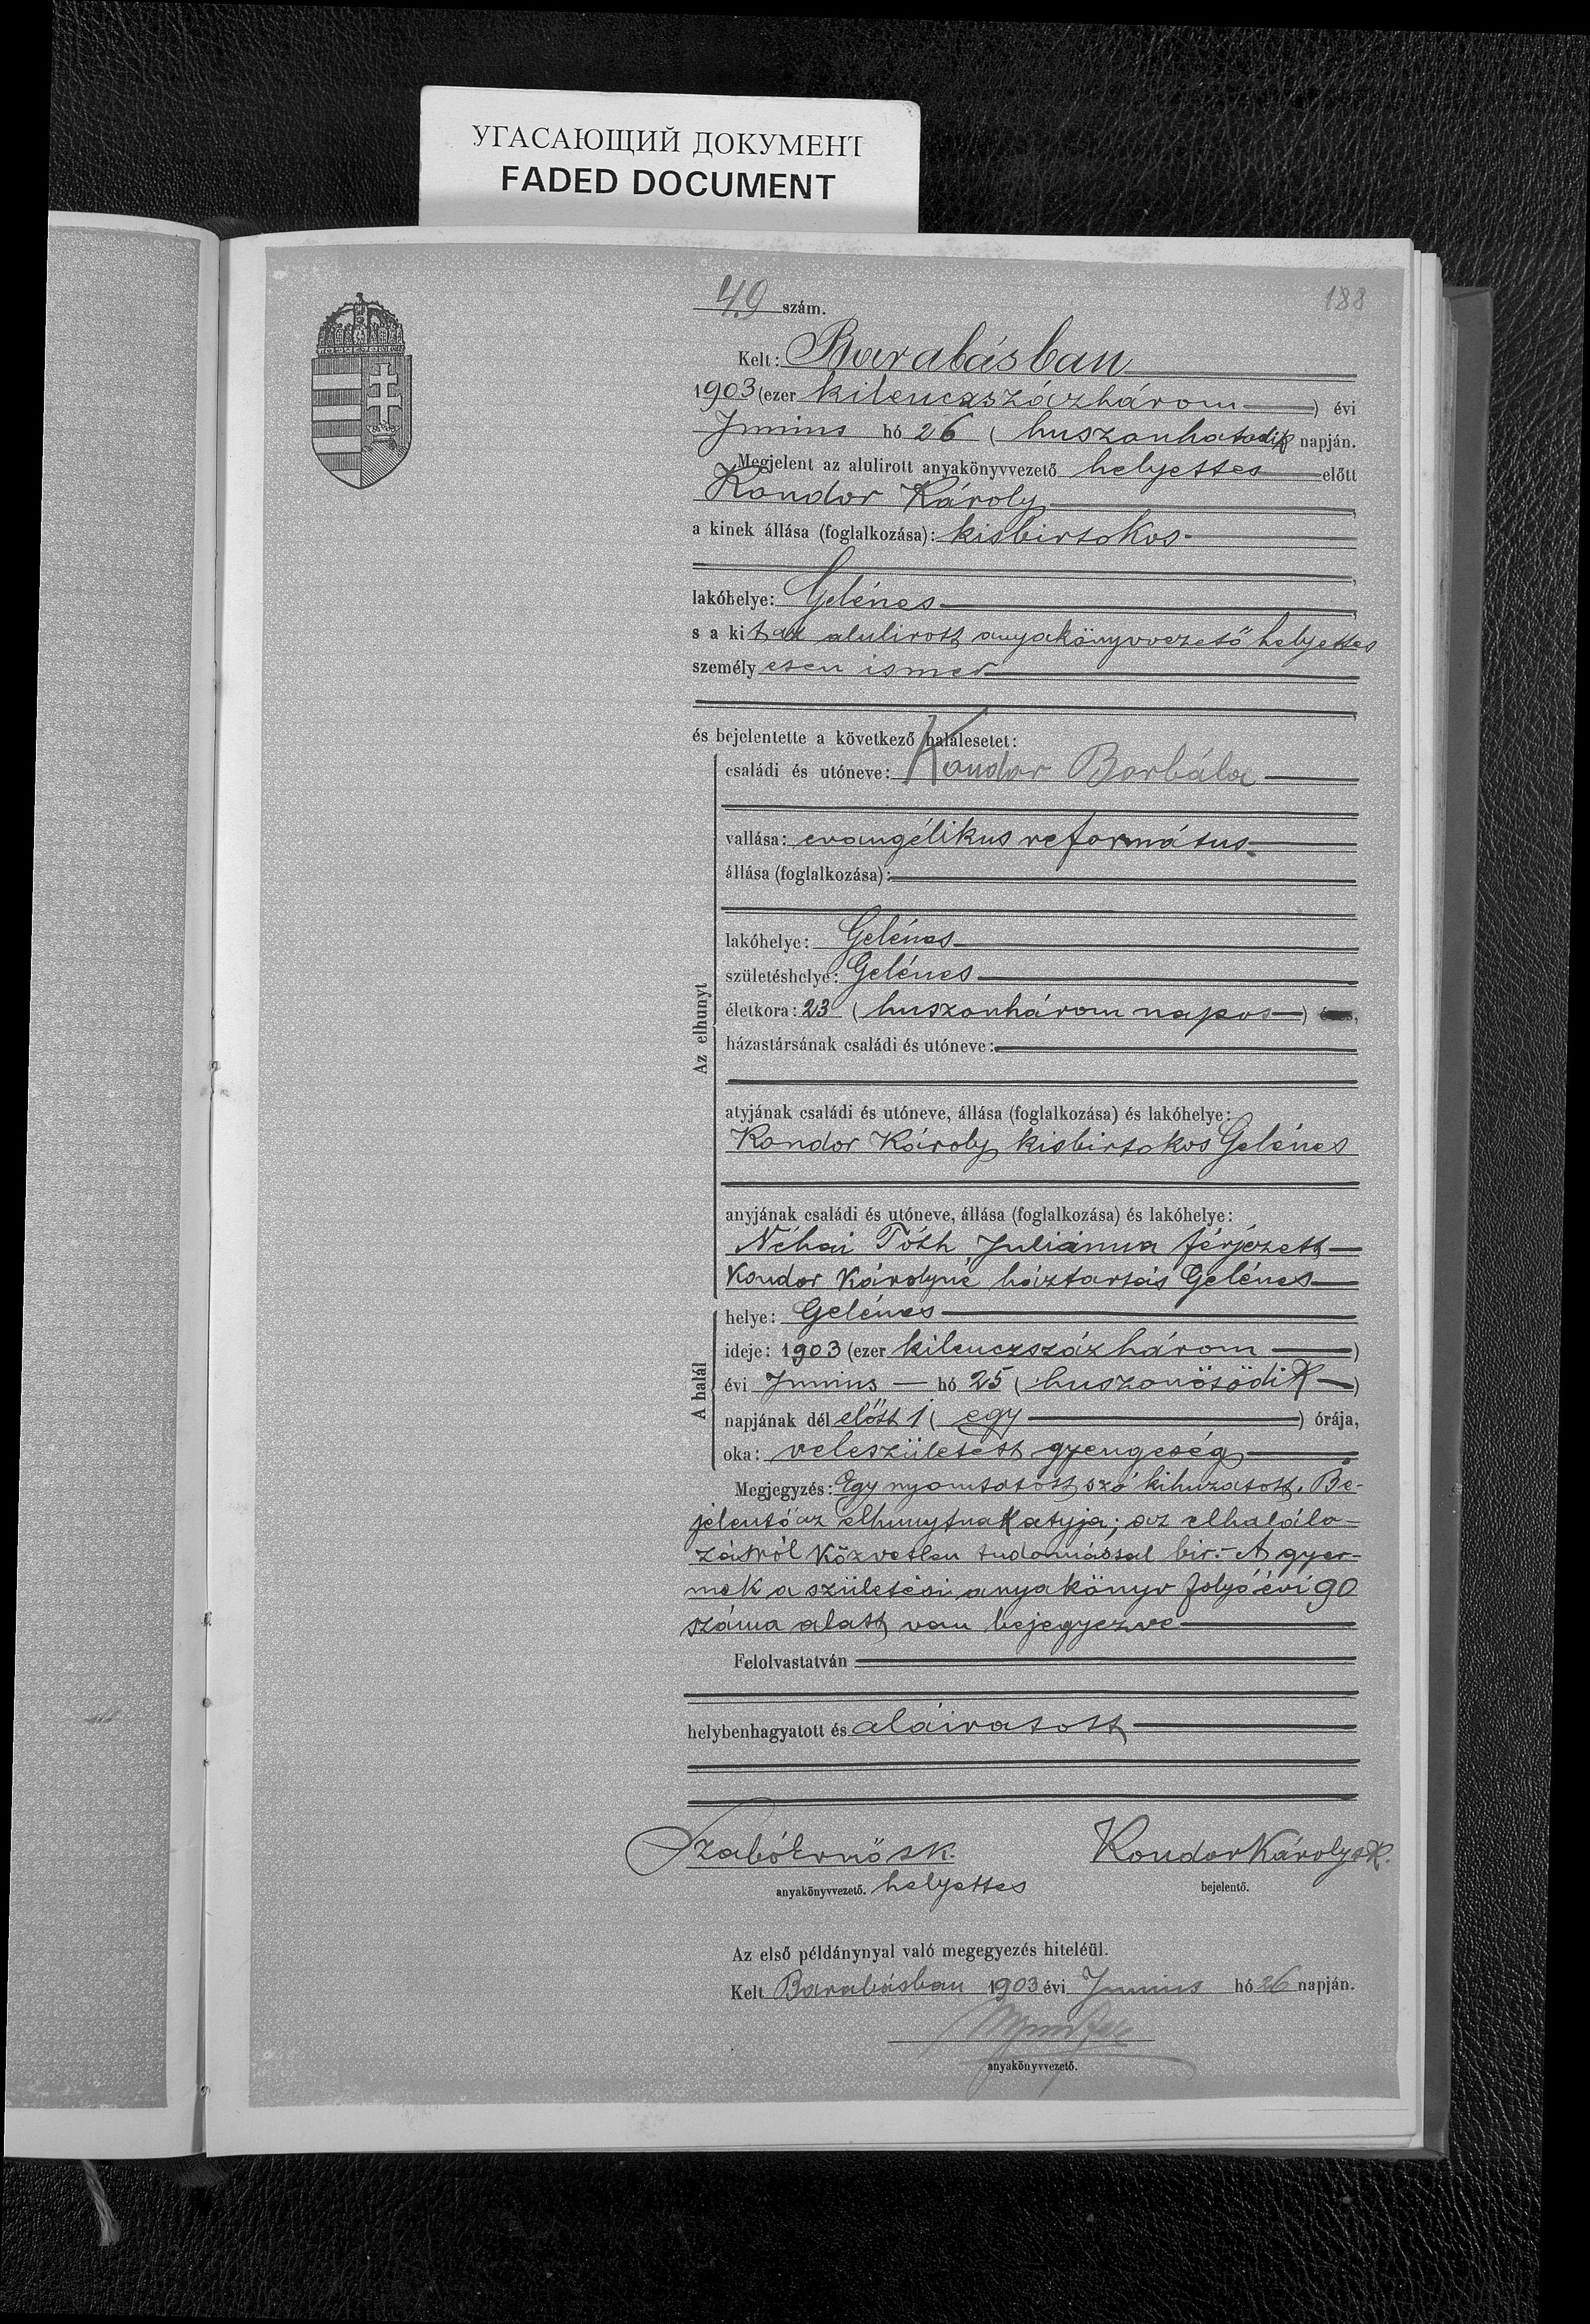 УГАСАЮЩИЙ ДОКУМЕНТ
FADED DOCUMENT
188
49 szám.
Kelt: Barabásban
1903 (ezer kilenczszázhárom ) évi
Junius hó 26 ( huszonhatodik napján.
Megjelent az alulirott anyakönyvvezető helyettes előtt
Kondor Károly ,
a kinek állása (foglalkozása): kisbirtokos
,
lakóhelye: Gelénes ,
s a kit az alulirott anyakönyvvezető helyettes
személyesen ismer
,
és bejelentette a következő halálesetet:
Az elhunyt
családi és utóneve: Kondor Borbála
vallása: evangélikus református
állása (foglalkozása):
lakóhelye: Gelénes
születéshelye: Gelénes
életkora: 23 ( huszonhárom napos ) éves,
házastársának családi és utóneve:
atyjának családi és utóneve, állása (foglalkozása) és lakóhelye:
Kondor Károly kisbirtokos Gelénes
anyjának családi és utóneve, állása (foglalkozása) és lakóhelye:
Néhai Tóth Juliánna férjezett
Kondor Károlyné háztartás Gelénes
A halál
helye: Gelénes
ideje: 1903 (ezer kilenczszázhárom )
évi Junius hó 25 ( huszonötödik )
napjának dél előtt 1 ( egy ) órája,
oka: veleszületett gyengeség
Megjegyzés: Egy nyomtatott szó kihuzatott. Be-
jelentő az elhunytnak atyja; az elhalálo-
zásról közvetlen tudomással bir. - A gyer-
mek a születési anyakönyv folyó évi 90
száma alatt van bejegyezve
Felolvastatván
helybenhagyatott és aláiratott
Szabó Ernő sk. Kondor Károly sk.
anyakönyvvezető. helyettes bejelentő.
Az első példánynyal való megegyezés hiteléül.
Kelt Barabásban 1903 évi Junius hó 26 napján.
anyakönyvvezető.